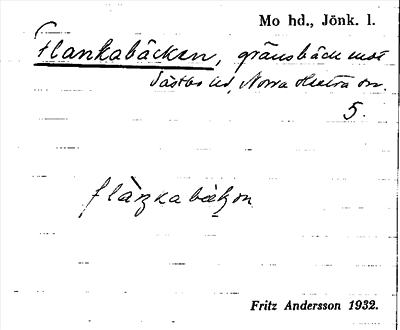 Mo hd., Jönk. l.
Flankabäcken, gränsbäck mot
Västbo hd, Norra Hestra sn.
5.
flàŋkabækən
Fritz Andersson 1932.